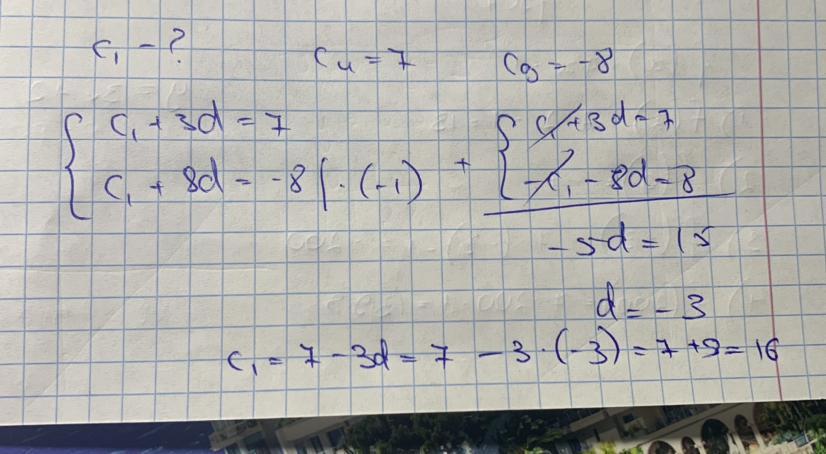 c₁ - ?   c₄ = 7   c₉ = -8
{ c₁ + 3d = 7   { c₁ + 3d = 7
c₁ + 8d = -8 | · (-1)   +   -c₁ - 8d = 8
-5d = 15
d = -3
c₁ = 7 - 3d = 7 - 3 · (-3) = 7 + 9 = 16